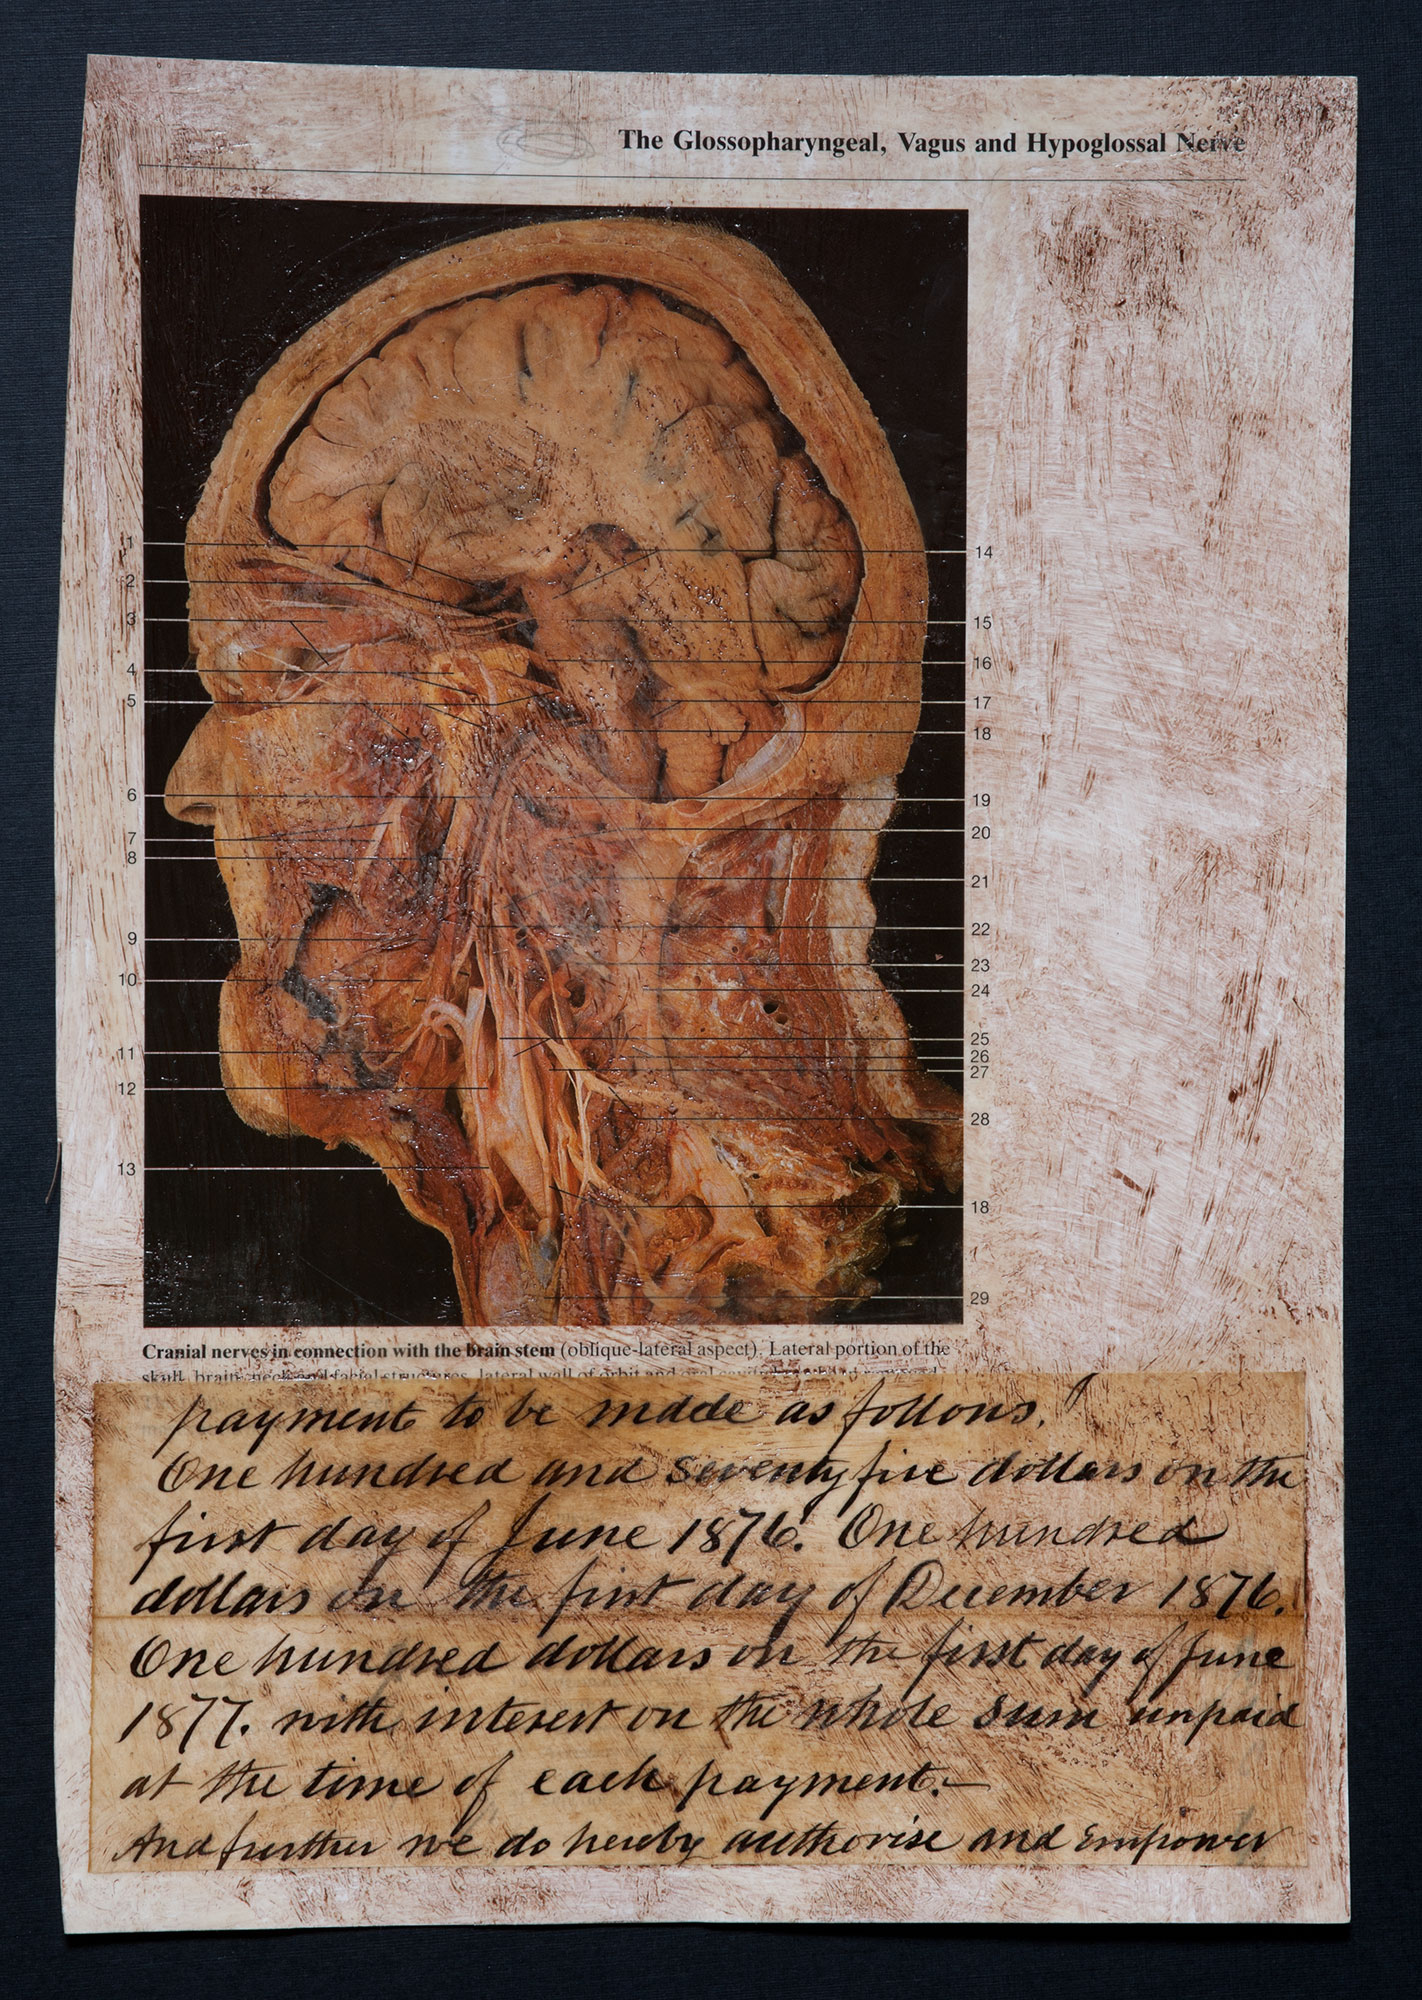 The Glossopharyngeal, Vagus and Hypoglossal Nerve
1
2
3
4
5
6
7
8
9
10
11
12
13
14
15
16
17
18
19
20
21
22
23
24
25
26
27
28
18
29
Cranial nerves in connection with the brain stem (oblique-lateral aspect). Lateral portion of the
skull, brain, neck and facial structures, lateral wall of orbit and oral
payment to be made as follows.
One hundred and seventy five dollars on the
first day of June 1876. One hundred
dollars on the first day of December 1876.
One hundred dollars on the first day of June
1877. with interest on the whole sum unpaid
at the time of each payment.—
And further we do hereby authorise and Empower